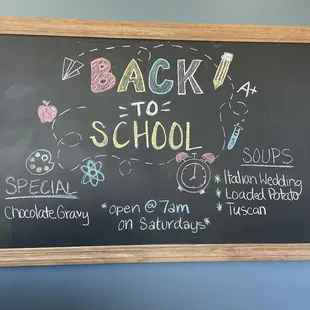 BACK
TO
SCHOOL
A+
SPECIAL
Chocolate Gravy
*open @ 7am
on Saturdays*
SOUPS
* Italian Wedding
* Loaded Potato
* Tuscan